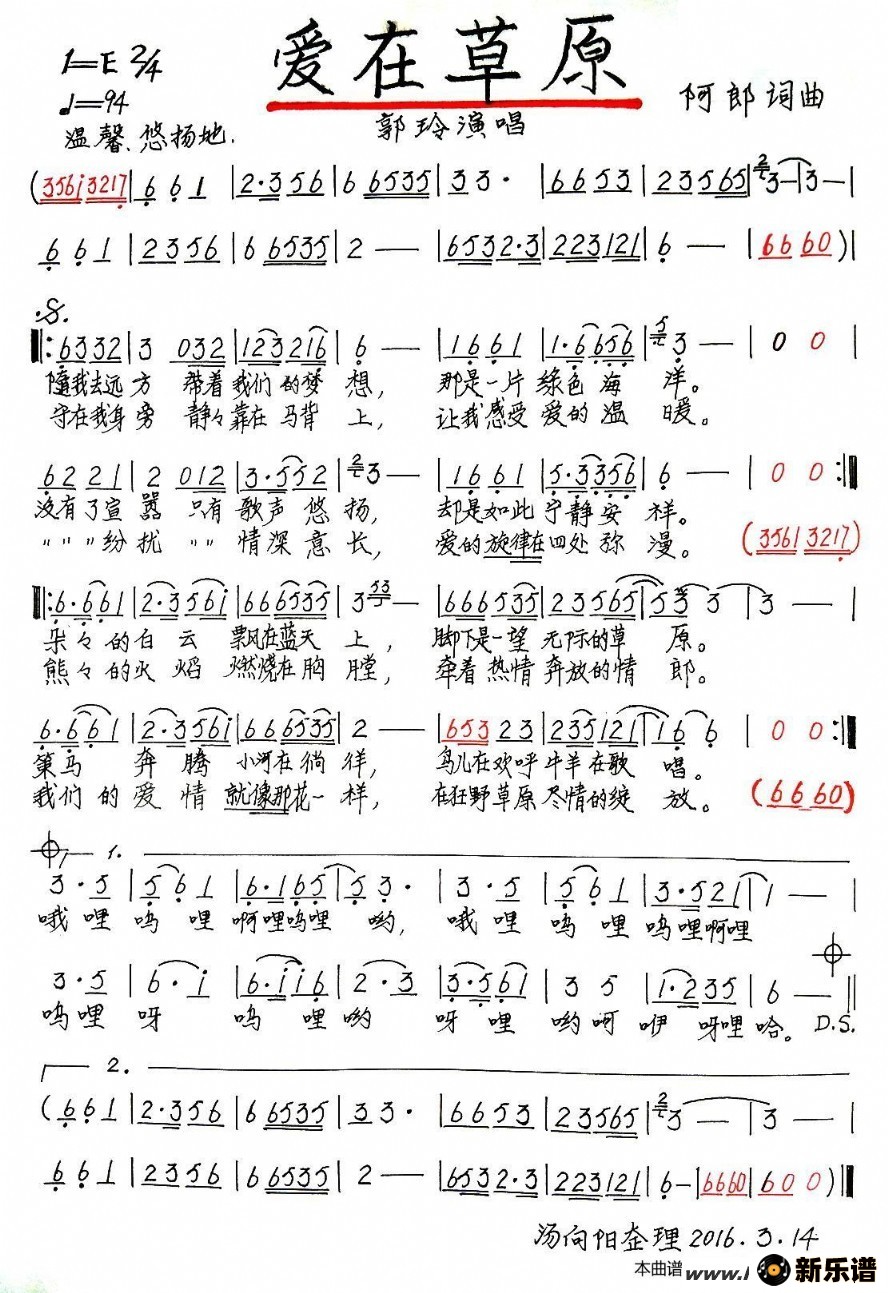 爱在草原
1=E 2/4
♩=94
温馨、悠扬地.
郭玲演唱
阿郎词曲
(3561 3217 | 6 6 1 | 2·356 | 6 6535 | 3 3· | 6653 | 23565 | 3— | 3— |
6 6 1 | 2356 | 6 6535 | 2 — | 6532·3 | 223121 | 6 — | 66 60 )|
|: 6332 | 3 032 | 123216 | 6 — | 16 61 | 1·6656 | 3 — | 0 0 |
随我去远方 带着我们的梦想, 那是一片绿色海洋。
守在我身旁 静々靠在马背上, 让我感受爱的温暖。
6221 | 2 012 | 3·552 | 3 — | 16 61 | 5·3356 | 6 — | 0 0 :|
没有了宣嚣 只有歌声悠扬, 却是如此宁静安祥。
〃〃〃纷扰 〃〃情深意长, 爱的旋律在四处弥漫。 (3561 3217)
|: 6·661 | 2·3561 | 666535 | 3 — | 666535 | 23565 | 53 3 | 3 — |
朵々的白云 飘在蓝天上, 脚下是一望无际的草原。
熊々的火焰 燃烧在胸膛, 牵着热情奔放的情郎。
6·661 | 2·3561 | 666535 | 2 — | 653 23 | 235121 | 16 6 | 0 0 :|
策马奔腾 小河在徜徉, 鸟儿在欢呼牛羊在歌唱。
我们的爱情 就像那花一样, 在狂野草原尽情的绽放。 (66 60)
1.
3·5 | 5 6 1 | 6·165 | 5 3· | 3·5 | 5 6 1 | 3·521 | 1 — |
哦哩呜哩啊哩呜哩哟, 哦哩呜哩呜哩啊哩
3·5 | 6·1 | 6·116 | 2·3 | 3·561 | 3 5 | 1·235 | 6 — ||
呜哩呀呜哩哟呀哩哟呵咿呀哩哈。 D.S.
2.
(6 6 1 | 2·356 | 6 6535 | 3 3· | 6653 | 23565 | 3 — | 3 — |
6 6 1 | 2356 | 6 6535 | 2 — | 6532·3 | 223121 | 6— | 6660 | 600 )||
汤向阳整理 2016.3.14
本曲谱
www.
新乐谱